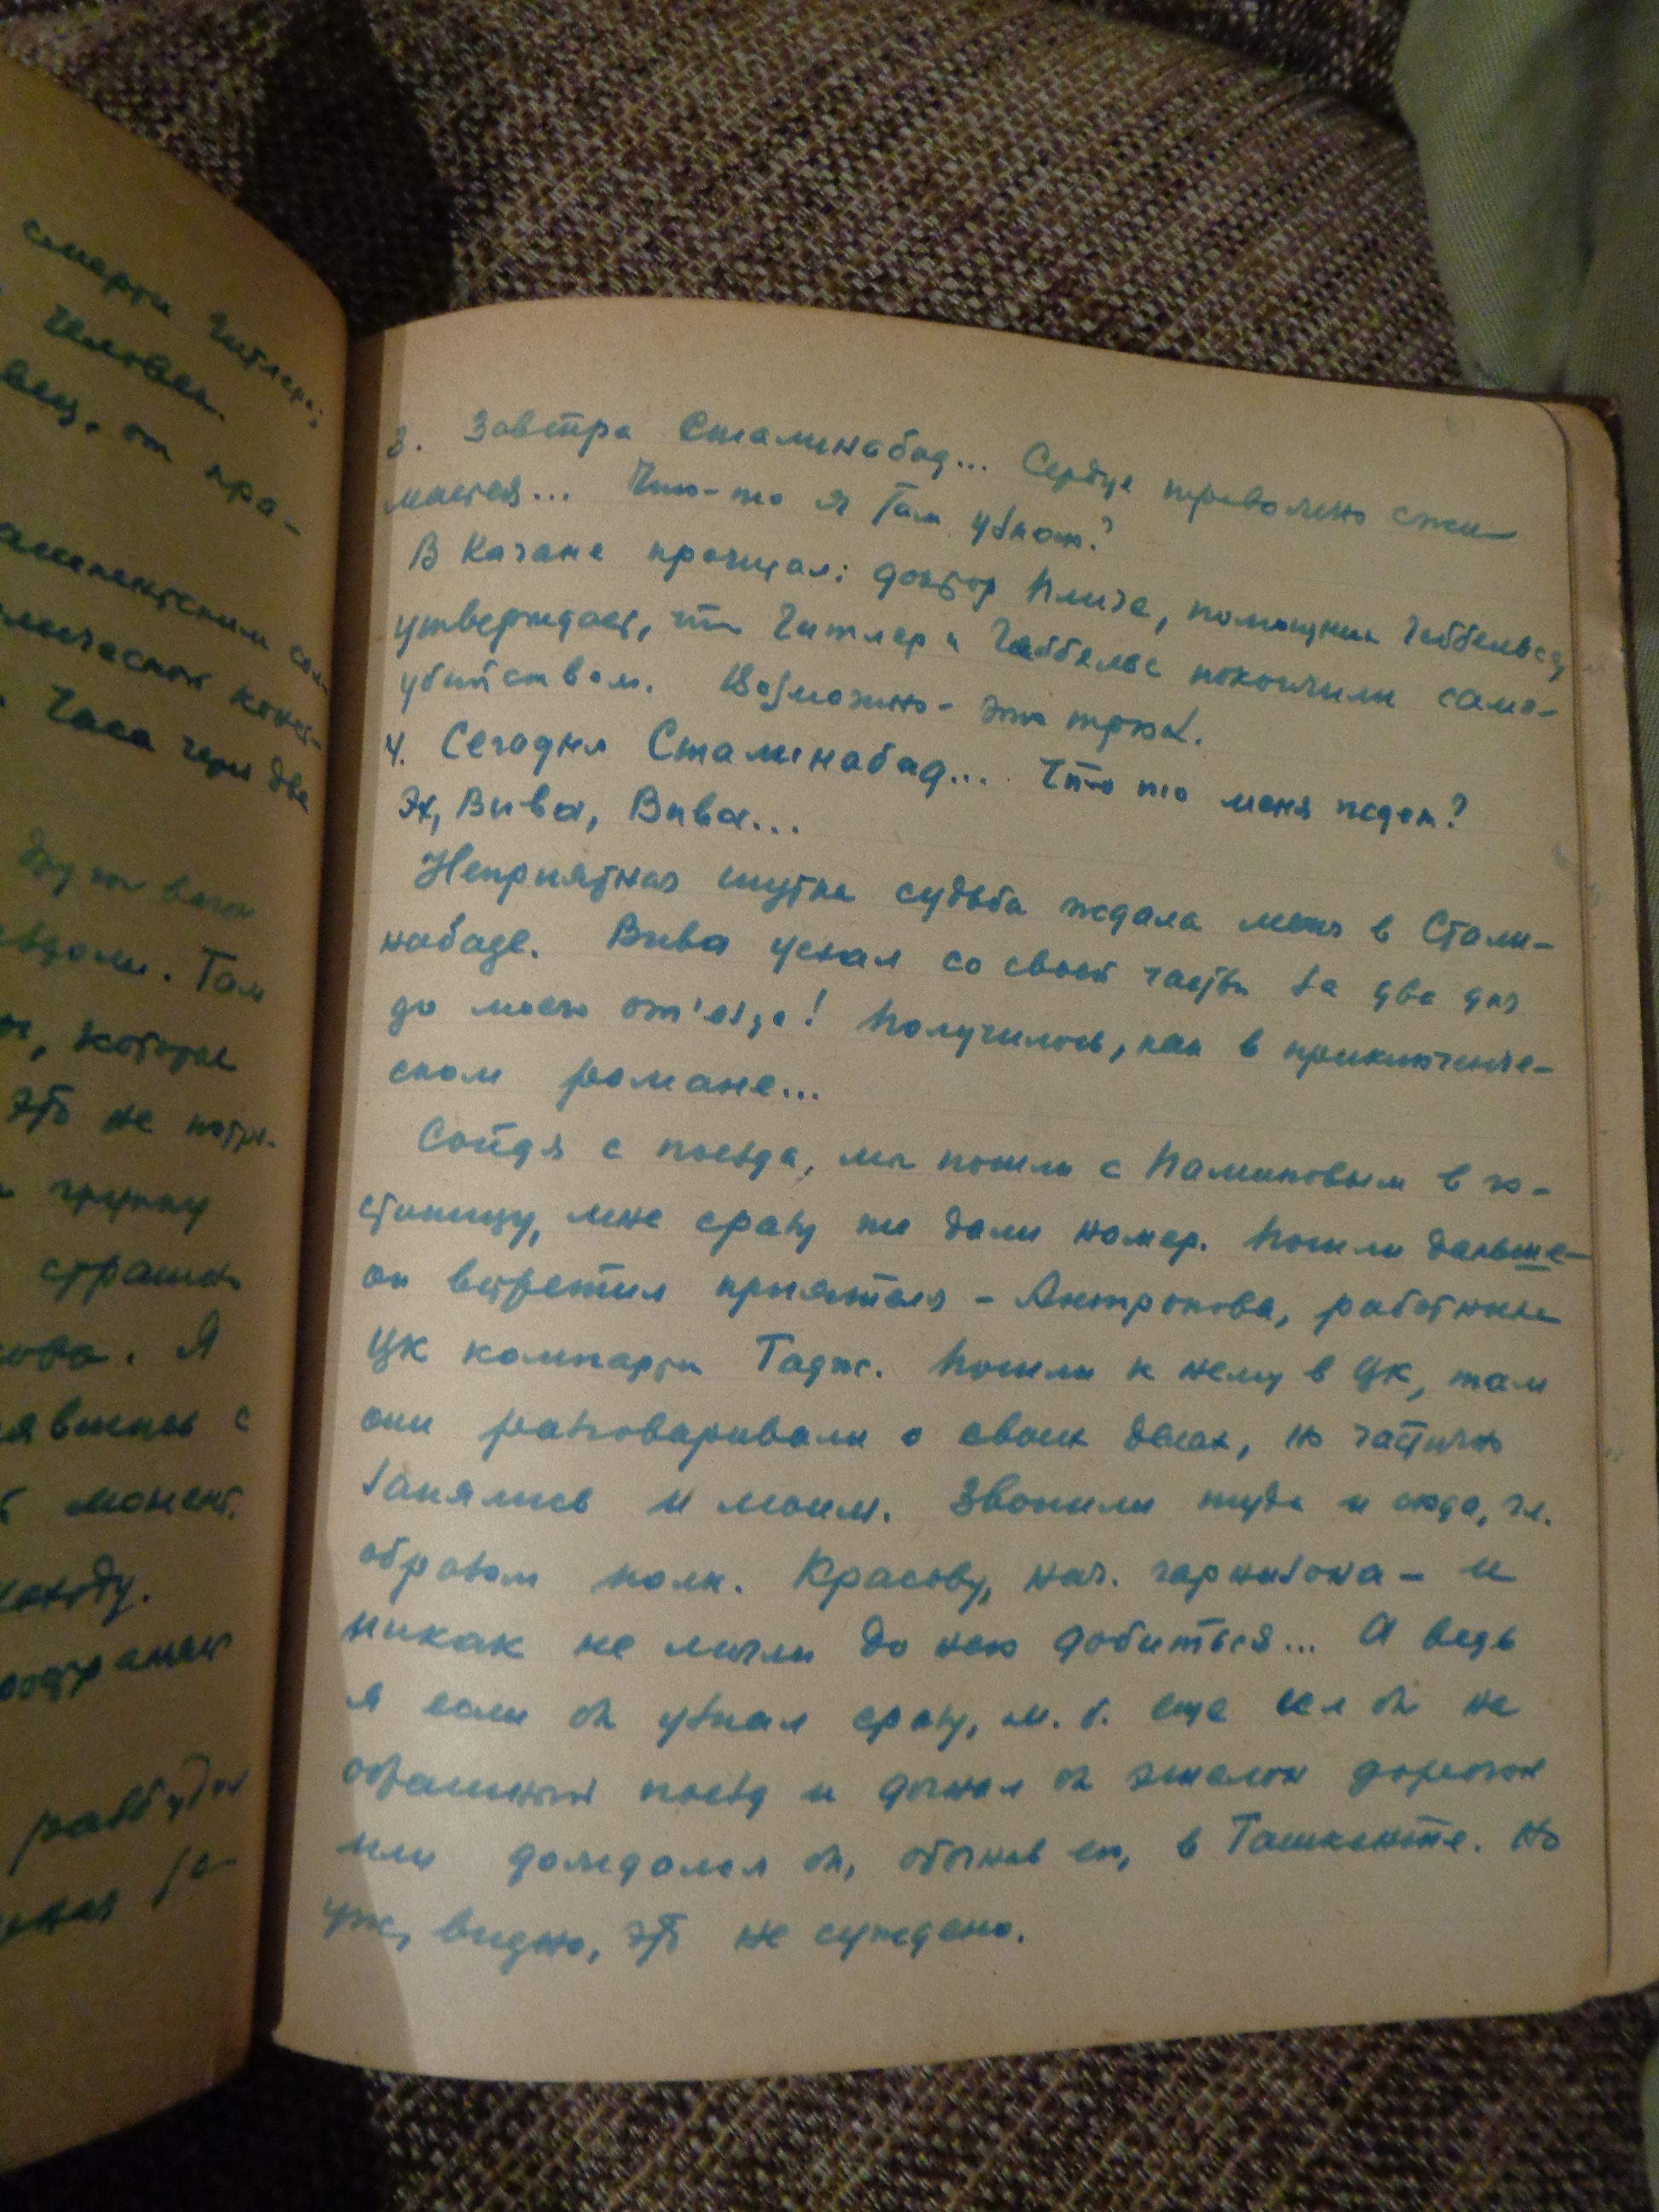 смерти Гитлера;
Человек.
вец. от пра-
Часа через два
другой вагон
Там
, которые
это не
группу
страшно
. Я
явились с
момент.
3. Завтра Сталинабад... Сердце тревожно сжи-
мается... Что-то я там узнаю?
В Кагане прочитал: доктор Фриче, помощник Геббельса,
утверждает, что Гитлер и Геббельс покончили само-
убийством. Возможно - это трюк.
4. Сегодня Сталинабад... Что то меня ждет?
Эх, Вива, Вива...
Неприятная шутка судьба ждала меня в Стали-
набаде. Вива уехал со своей частью за два дня
до моего от'езда! Получилось, как в приключенче-
ском романе...
Сойдя с поезда, мы пошли с в го-
стиницу, мне сразу же дали номер. Пошли дальше -
он встретил приятеля - Антропова, работника
ЦК компартии Тадж. Пошли к нему в ЦК, там
они разговаривали о своих делах, но частично
занялись и моим. Звонили туда и сюда, гл.
образом полк. Красову, нач. гарнизона - и
никак не могли до него добиться... А ведь
я если бы узнал сразу, м. б. еще сел бы на
обратный поезд и догнал бы эшелон дорогой
или дождался бы, обогнав его, в Ташкенте. Но
уж, видно, это не суждено.